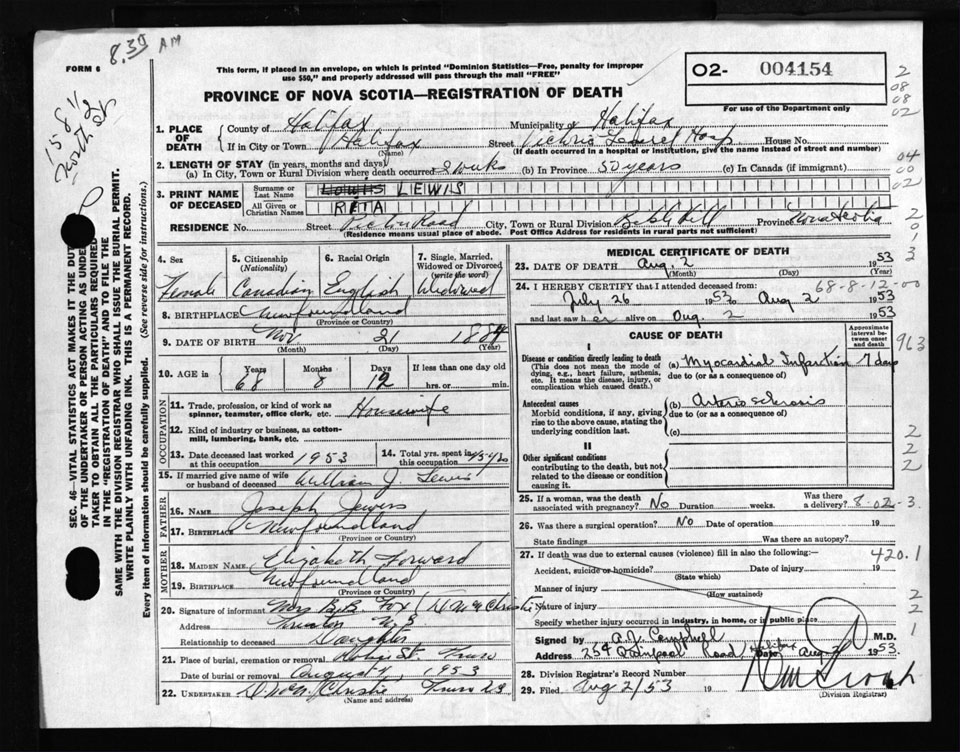 8.30 AM
FORM 6
This form, if placed in an envelope, on which is printed "Dominion Statistics—Free, penalty for improper
use $50," and properly addressed will pass through the mail "FREE"
02- 004154
For use of the Department only
PROVINCE OF NOVA SCOTIA—REGISTRATION OF DEATH
1. PLACE OF DEATH
County of Halifax Municipality of Halifax
If in City or Town Halifax Street Victoria General Hosp House No.
(Name) (If death occurred in a hospital or institution, give the name instead of street and number)
2. LENGTH OF STAY (in years, months and days)
(a) In City, Town or Rural Division where death occurred 2 weeks (b) In Province 50 years (c) In Canada (if immigrant)
3. PRINT NAME OF DECEASED
Surname or Last Name LEWIS
All Given or Christian Names RETA
RESIDENCE No. Street Pictou Road City, Town or Rural Division Bible Hill Province Nova Scotia
(Residence means usual place of abode. Post Office Address for residents in rural parts not sufficient)
4. Sex Female
5. Citizenship (Nationality) Canadian
6. Racial Origin English
7. Single, Married, Widowed or Divorced (write the word) Widowed
8. BIRTHPLACE Newfoundland
(Province or Country)
9. DATE OF BIRTH Nov. 21 1884
(Month) (Day) (Year)
10. AGE in Years 68 Months 8 Days 12 If less than one day old
hrs. or min.
OCCUPATION
11. Trade, profession, or kind of work as spinner, teamster, office clerk, etc. Housewife
12. Kind of industry or business, as cotton-mill, lumbering, bank, etc.
13. Date deceased last worked at this occupation 1953
14. Total yrs. spent in this occupation
15. If married give name of wife or husband of deceased William J. Lewis
FATHER
16. Name Joseph Jewers
17. Birthplace Newfoundland
(Province or Country)
MOTHER
18. MAIDEN NAME Elizabeth Forward
19. BIRTHPLACE Newfoundland
(Province or Country)
20. Signature of informant Mrs B.B. Fox
Address Truro N.S
Relationship to deceased Daughter
21. Place of burial, cremation or removal Robie St. Truro
Date of burial or removal August 4, 1953
22. UNDERTAKER Truro N.S
(Name and address)
MEDICAL CERTIFICATE OF DEATH
23. DATE OF DEATH Aug. 2 1953
(Month) (Day) (Year)
24. I HEREBY CERTIFY that I attended deceased from: 68-8-12-00
July 26 1953 to Aug 2 1953
and last saw her alive on Aug. 2 1953
CAUSE OF DEATH
Approximate interval between onset and death
I
Disease or condition directly leading to death
(This does not mean the mode of dying, e.g., heart failure, asthenia, etc. It means the disease, injury, or complication which caused death.)
(a) Myocardial Infarction 7 days
due to (or as a consequence of)
Antecedent causes
Morbid conditions, if any, giving rise to the above cause, stating the underlying condition last.
(b) Arteriosclerosis
due to (or as a consequence of)
(c)
II
Other significant conditions
contributing to the death, but not related to the disease or condition causing it.
25. If a woman, was the death associated with pregnancy? No Duration weeks. Was there a delivery? 8-02-3
26. Was there a surgical operation? No Date of operation 19
State findings Was there an autopsy?
27. If death was due to external causes (violence) fill in also the following:— 420.1
Accident, suicide or homicide? Date of injury 19
(State which)
Manner of injury
(How sustained)
Nature of injury
Specify whether injury occurred in industry, in home, or in public place
Signed by A.J. Campbell M.D.
Address 254 Quinpool Road, Halifax Date Aug. 2 1953.
28. Division Registrar's Record Number
29. Filed Aug 2/53 19
(Division Registrar)
SEC. 46—VITAL STATISTICS ACT MAKES IT THE DUTY
OF THE UNDERTAKER OR PERSON ACTING AS UNDER-
TAKER TO OBTAIN ALL THE PARTICULARS REQUIRED
IN THE "REGISTRATION OF DEATH" AND TO FILE THE
SAME WITH THE DIVISION REGISTRAR WHO SHALL ISSUE THE BURIAL PERMIT.
WRITE PLAINLY WITH UNFADING INK. THIS IS A PERMANENT RECORD.
Every item of information should be carefully supplied. (See reverse side for instructions.)
2
08
08
02
04
00
02
2
0
1
3
963
2
2
2
2
2
1